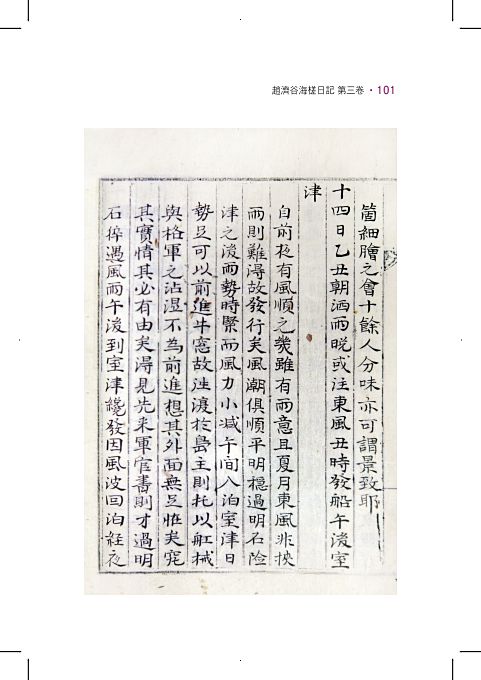 趙濟谷海槎日記 第三卷 · 101
箇細膾之會十餘人分味亦可謂景致耶
十四日乙丑朝洒雨晩或注東風丑時發船午後室
津
自前夜有風順之幾雖有雨意且夏月東風非挾
雨則難淂故發行矣風潮俱順平明穩過明石險
津之後雨勢時緊而風力小減午间入泊室津日
勢足可以前進半窓故進渡於島主則托以舡械
與格軍之沾湿不為前進想其外面無足恠矣究
其實情其必有由矣淂見先来軍官書則才過明
石猝遇風雨午後到室津纔發因風波回泊経夜